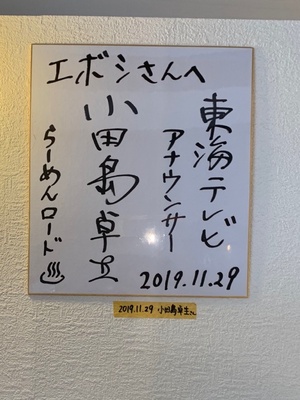 エボシさんへ
東海テレビ
アナウンサー
小田島卓生
らーめんロード♨
2019.11.29
2019.11.29 小田島卓生さん